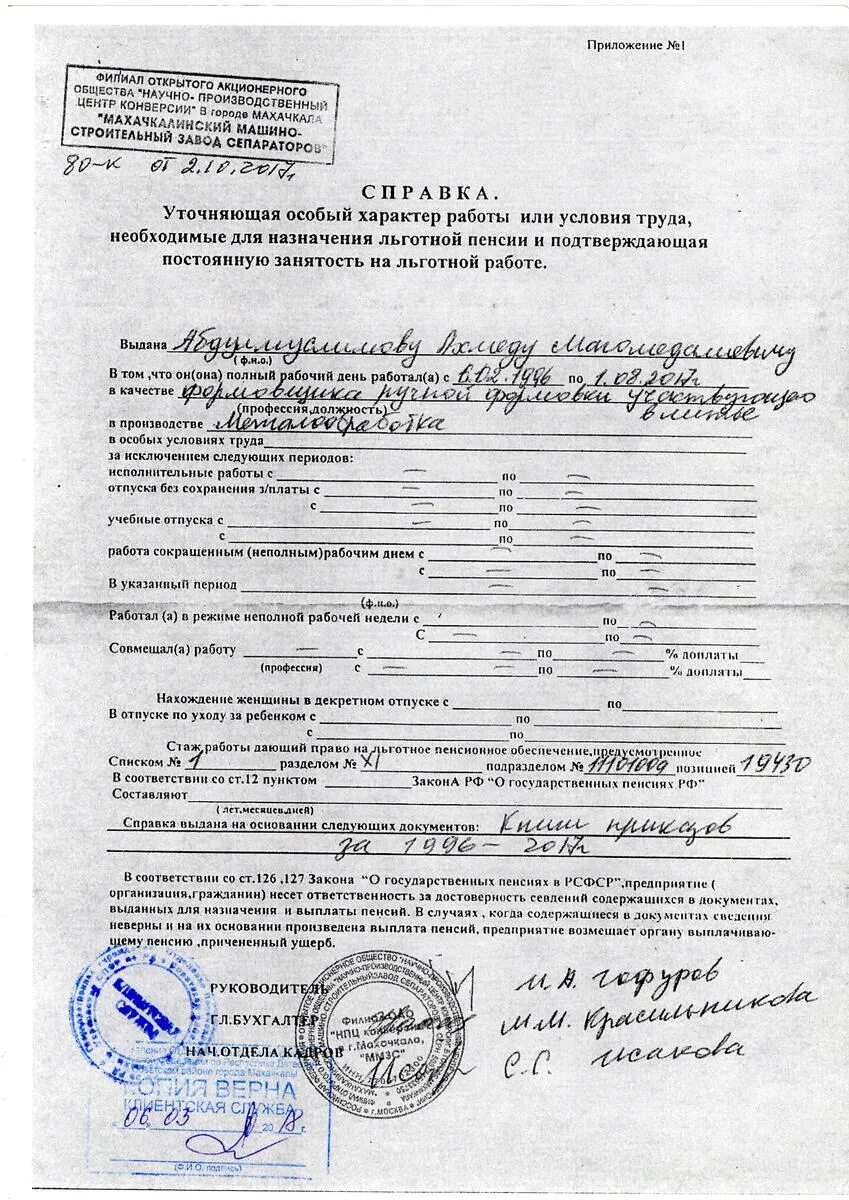 Приложение №1
ФИЛИАЛ ОТКРЫТОГО АКЦИОНЕРНОГО
ОБЩЕСТВА "НАУЧНО- ПРОИЗВОДСТВЕННЫЙ
ЦЕНТР КОНВЕРСИИ" В городе МАХАЧКАЛА
"МАХАЧКАЛИНСКИЙ МАШИНО-
СТРОИТЕЛЬНЫЙ ЗАВОД СЕПАРАТОРОВ"
80-к от 2.10.2017г
СПРАВКА.
Уточняющая особый характер работы или условия труда,
необходимые для назначения льготной пенсии и подтверждающая
постоянную занятость на льготной работе.
Выдана Абдулмуслимову Ахмеду Магомедалиевичу
(ф.и.о.)
В том ,что он(она) полный рабочий день работал(а) с 6.02.1996 по 1.08.2017г
в качестве формовщика ручной формовки участвующего
(профессия,должность) в литье
в производстве Металообработка
в особых условиях труда
за исключением следующих периодов:
исполнительные работы с — по —
отпуска без сохранения з/платы с — по —
с — по —
учебные отпуска с — по —
с по —
работа сокращенным (неполным)рабочим днем с — по —
с — по —
В указанный период — —
(ф.и.о.)
Работал (а) в режиме неполной рабочей недели с по —
С — по —
Совмещал(а) работу — с — по — % доплаты
(профессия) с — — по — % доплаты
Нахождение женщины в декретном отпуске с по
В отпуске по уходу за ребенком с по
с по
Стаж работы дающий право на льготное пенсионное обеспечение,предусмотренное
Списком № 1 разделом № XI подразделом № 11101009 позицией 19430
В соответствии со ст.12 пунктом ЗаконА РФ "О государственных пенсиях РФ"
Составляют
( лет,месяцев,дней)
Справка выдана на основании следующих документов: Книги приказов
за 1996 – 2017г
В соответствии со ст.126 ,127 Закона "О государственных пенсиях в РСФСР",предприятие (
организация,гражданин) несет ответственность за достоверность севдений содержащихся в документах,
выданных для назначения и выплаты пенсий. В случаях , когда содержащиеся в документах сведения
неверны и на их основании произведена выплата пенсий, предприятие возмещает органу выплачиваю-
щему пенсию ,причененный ущерб.
РУКОВОДИТЕЛЬ И.А. Гафуров
ГЛ.БУХГАЛТЕР М.М. Красильникова
НАЧ.ОТДЕЛА КАДРОВ С.С. Исакова
Филиал ОАО
"НПЦ конверсии"
в г.Махачкала,
"ММЗС"
г.МОСКВА
КЛИЕНТСКАЯ
СЛУЖБА
КОПИЯ ВЕРНА
КЛИЕНТСКАЯ СЛУЖБА
"06" 03 2018 г.
(Ф.И.О. подпись)